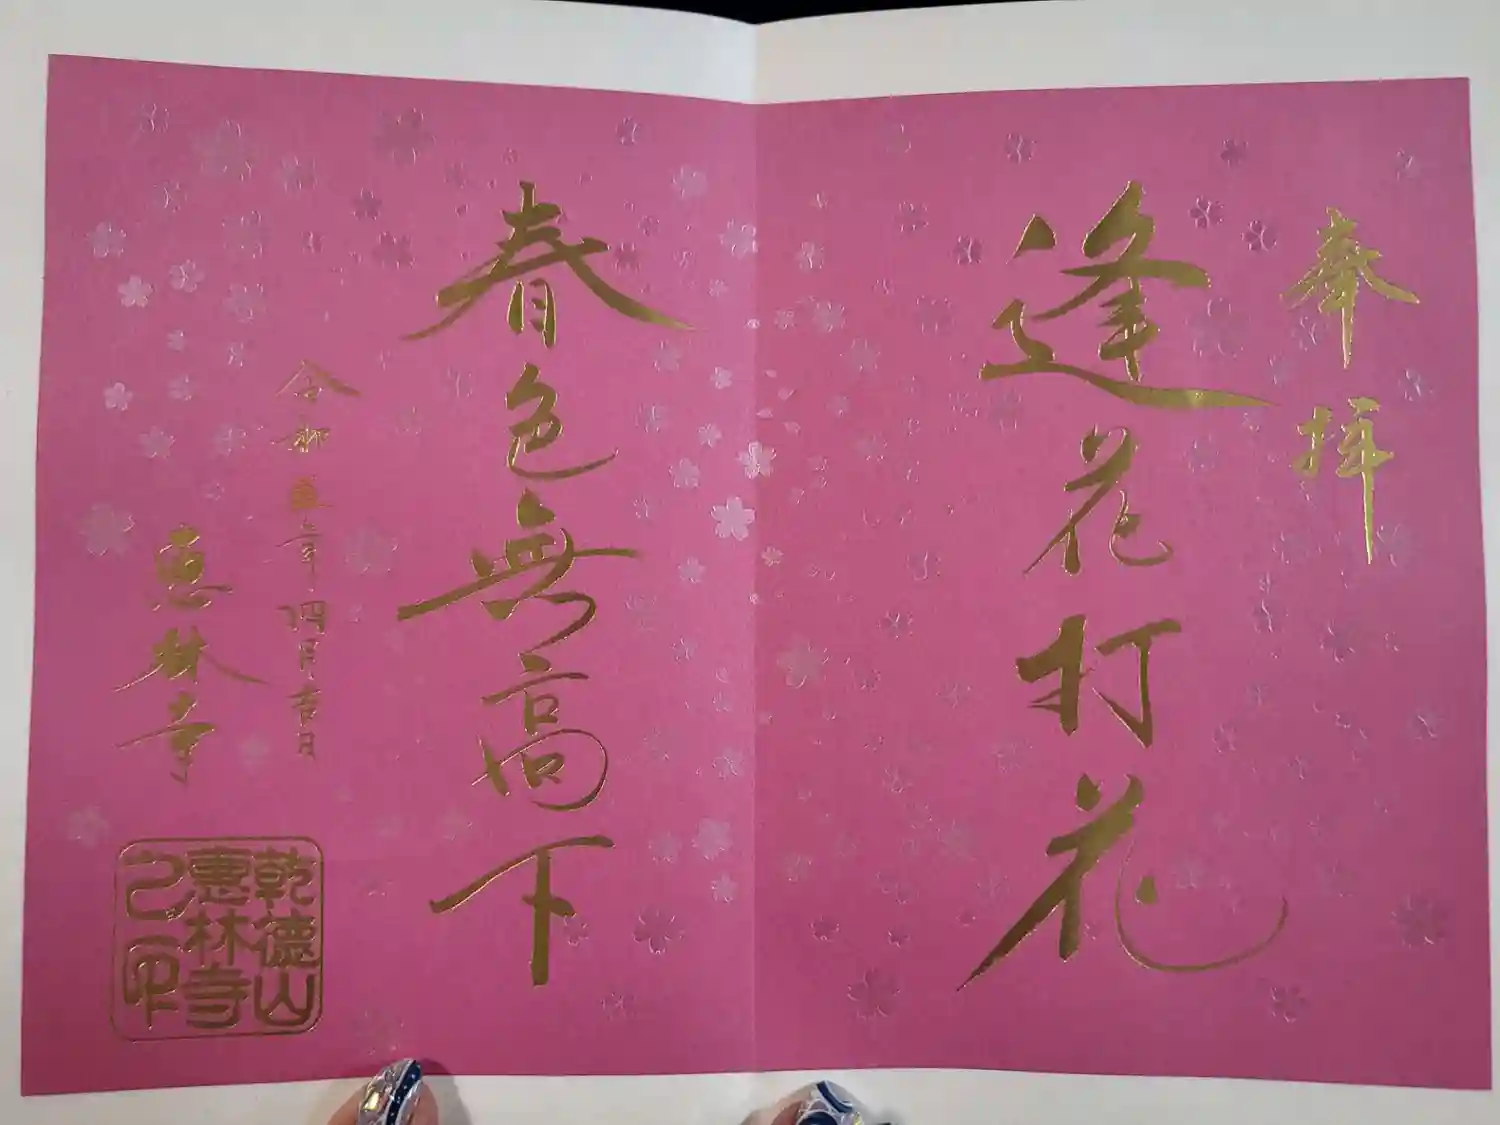 奉拝
逢花打花
春色無高下
令和五年四月吉日
恵林寺
乾徳山
恵林寺
之印